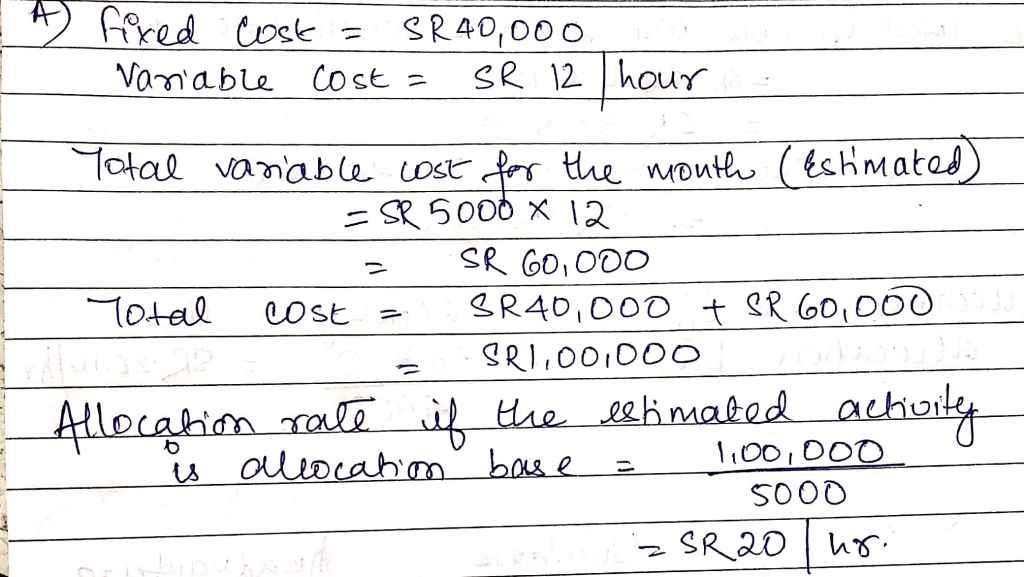 A) Fixed Cost = SR40,000
Variable cost = SR 12 / hour
Total variable cost for the month (Estimated)
= SR 5000 x 12
= SR 60,000
Total cost = SR40,000 + SR 60,000
= SR1,00,000
Allocation rate if the estimated activity
is allocation base = 1,00,000
5000
= SR 20 / hr.